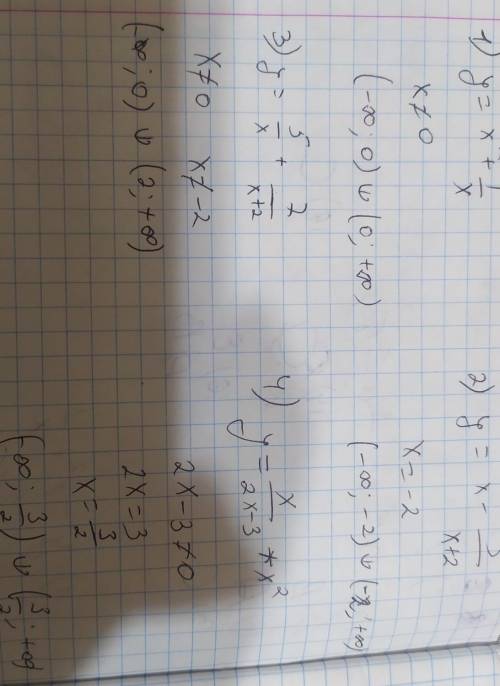 1) y = x + 1/x
x ≠ 0
(-∞; 0) ∪ (0; +∞)
2) y = x - 3/x+2
x = -2
(-∞; -2) ∪ (-2; +∞)
3) y = 5/x + 7/x+2
x ≠ 0 x ≠ -2
(-∞; 0) ∪ (2; +∞)
4) y = x/2x-3 * x²
2x - 3 ≠ 0
2x = 3
x = 3/2
(-∞; 3/2) ∪ (3/2; +∞)